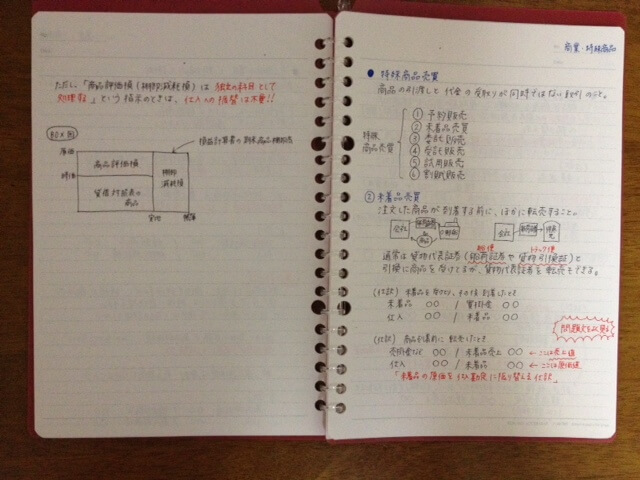 ただし、「商品評価損(棚卸減耗損)は 独立の科目として
処理する」という指示のときは、仕入への振替は不要!!
BOX図
損益計算書の期末商品棚卸高
原価
商品評価損
棚卸
減耗損
時価
貸借対照表の
商品
実地
帳簿
商業・特殊商品
● 特殊商品売買
商品の引渡しと代金の受取りが同時ではない取引のこと。
特殊
商品売買
① 予約販売
② 未着品売買
③ 委託販売
④ 受託販売
⑤ 試用販売
⑥ 割賦販売
② 未着品売買
注文した商品が到着する前に、ほかに転売すること。
会社
商品
会社
船便
トラック便
通常は貨物代表証券(船荷証券や貨物引換証)と
引換に商品を受けとるが、貨物代表証券を転売もできる。
(仕訳) 未着品を受けとり、その後到着したとき
未着品 ○○ / 買掛金 ○○
仕入 ○○ / 未着品 ○○
問題文をよく見る
(仕訳) 商品到着前に転売したとき
売掛金など ○○ / 未着品売上 ○○ ←ここは売上値
仕入 ○○ / 未着品 ○○ ←ここは原価
「未着品の原価を仕入勘定に振り替える仕訳」